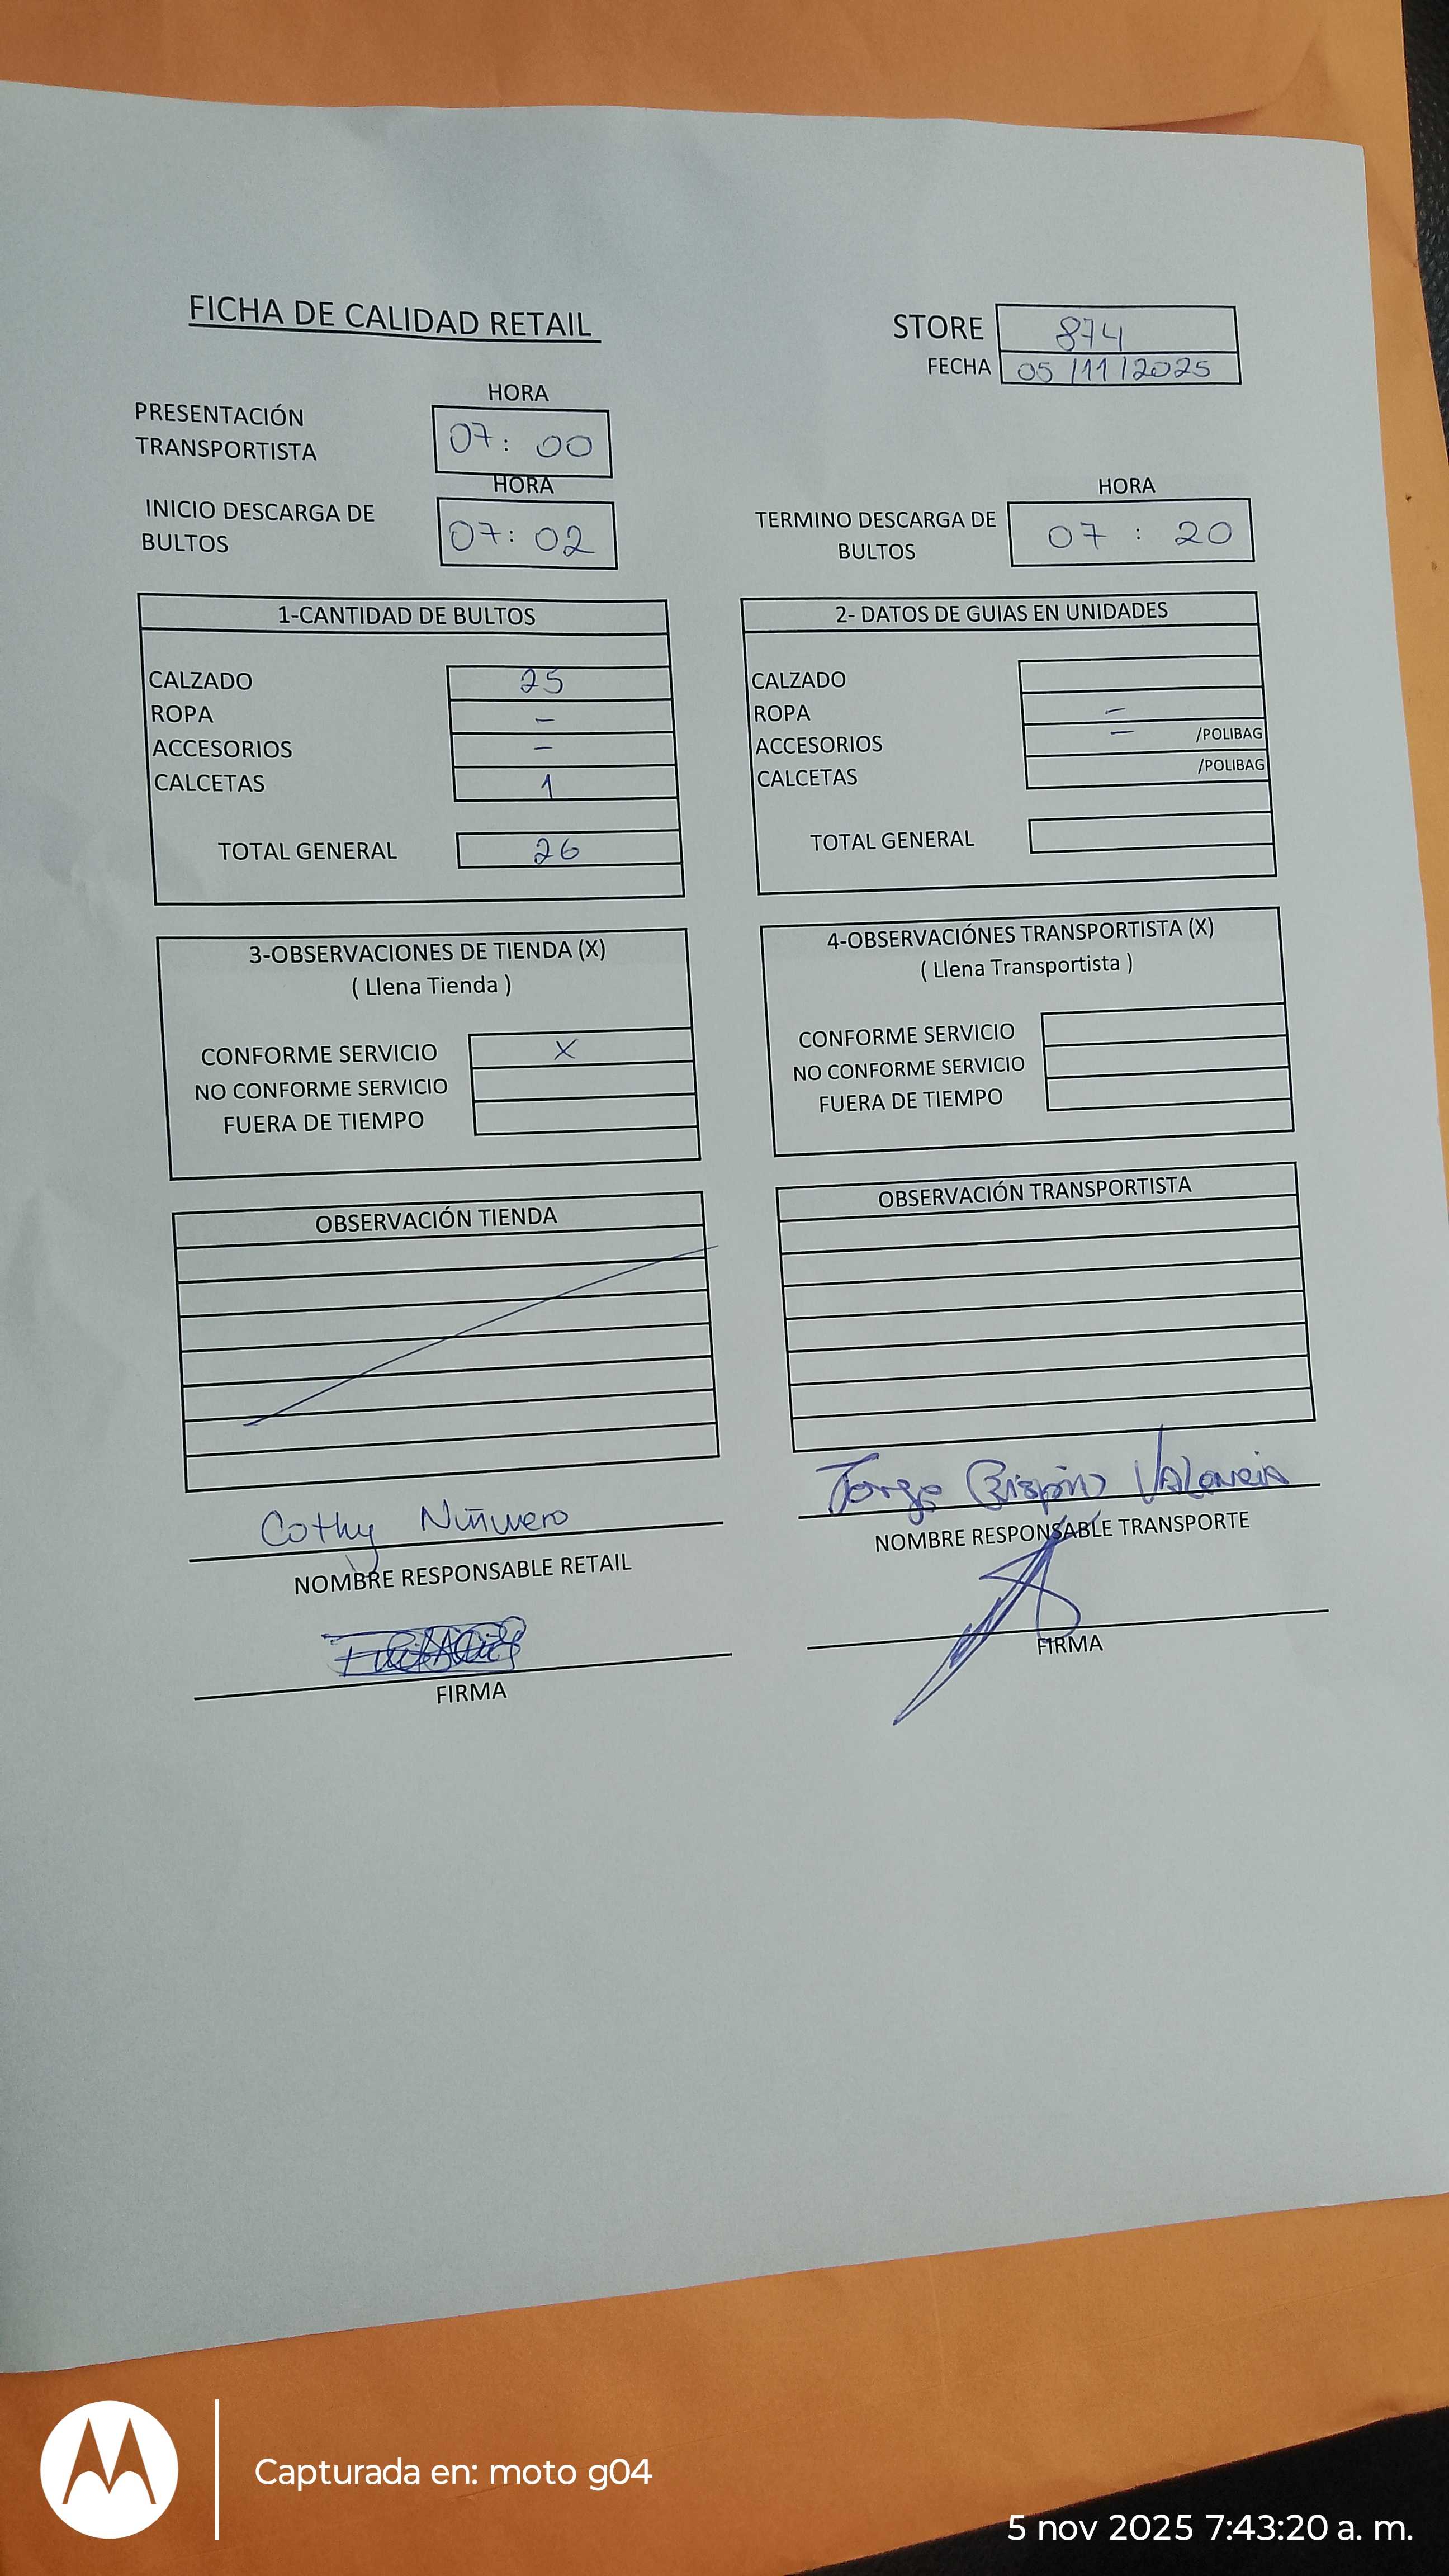 FICHA DE CALIDAD RETAIL
STORE 874
FECHA 05/11/2025
HORA
PRESENTACIÓN TRANSPORTISTA 07:00
HORA
INICIO DESCARGA DE BULTOS 07:02
HORA
TERMINO DESCARGA DE BULTOS 07:20
1-CANTIDAD DE BULTOS
CALZADO 25
ROPA –
ACCESORIOS –
CALCETAS 1
TOTAL GENERAL 26
2- DATOS DE GUIAS EN UNIDADES
CALZADO
ROPA –
ACCESORIOS – /POLIBAG
CALCETAS /POLIBAG
TOTAL GENERAL
3-OBSERVACIONES DE TIENDA (X)
( Llena Tienda )
CONFORME SERVICIO X
NO CONFORME SERVICIO
FUERA DE TIEMPO
4-OBSERVACIÓNES TRANSPORTISTA (X)
( Llena Transportista )
CONFORME SERVICIO
NO CONFORME SERVICIO
FUERA DE TIEMPO
OBSERVACIÓN TIENDA
OBSERVACIÓN TRANSPORTISTA
Cathy
NOMBRE RESPONSABLE RETAIL
FIRMA
Jorge Crispin Valencia
NOMBRE RESPONSABLE TRANSPORTE
FIRMA
Capturada en: moto g04
5 nov 2025 7:43:20 a. m.